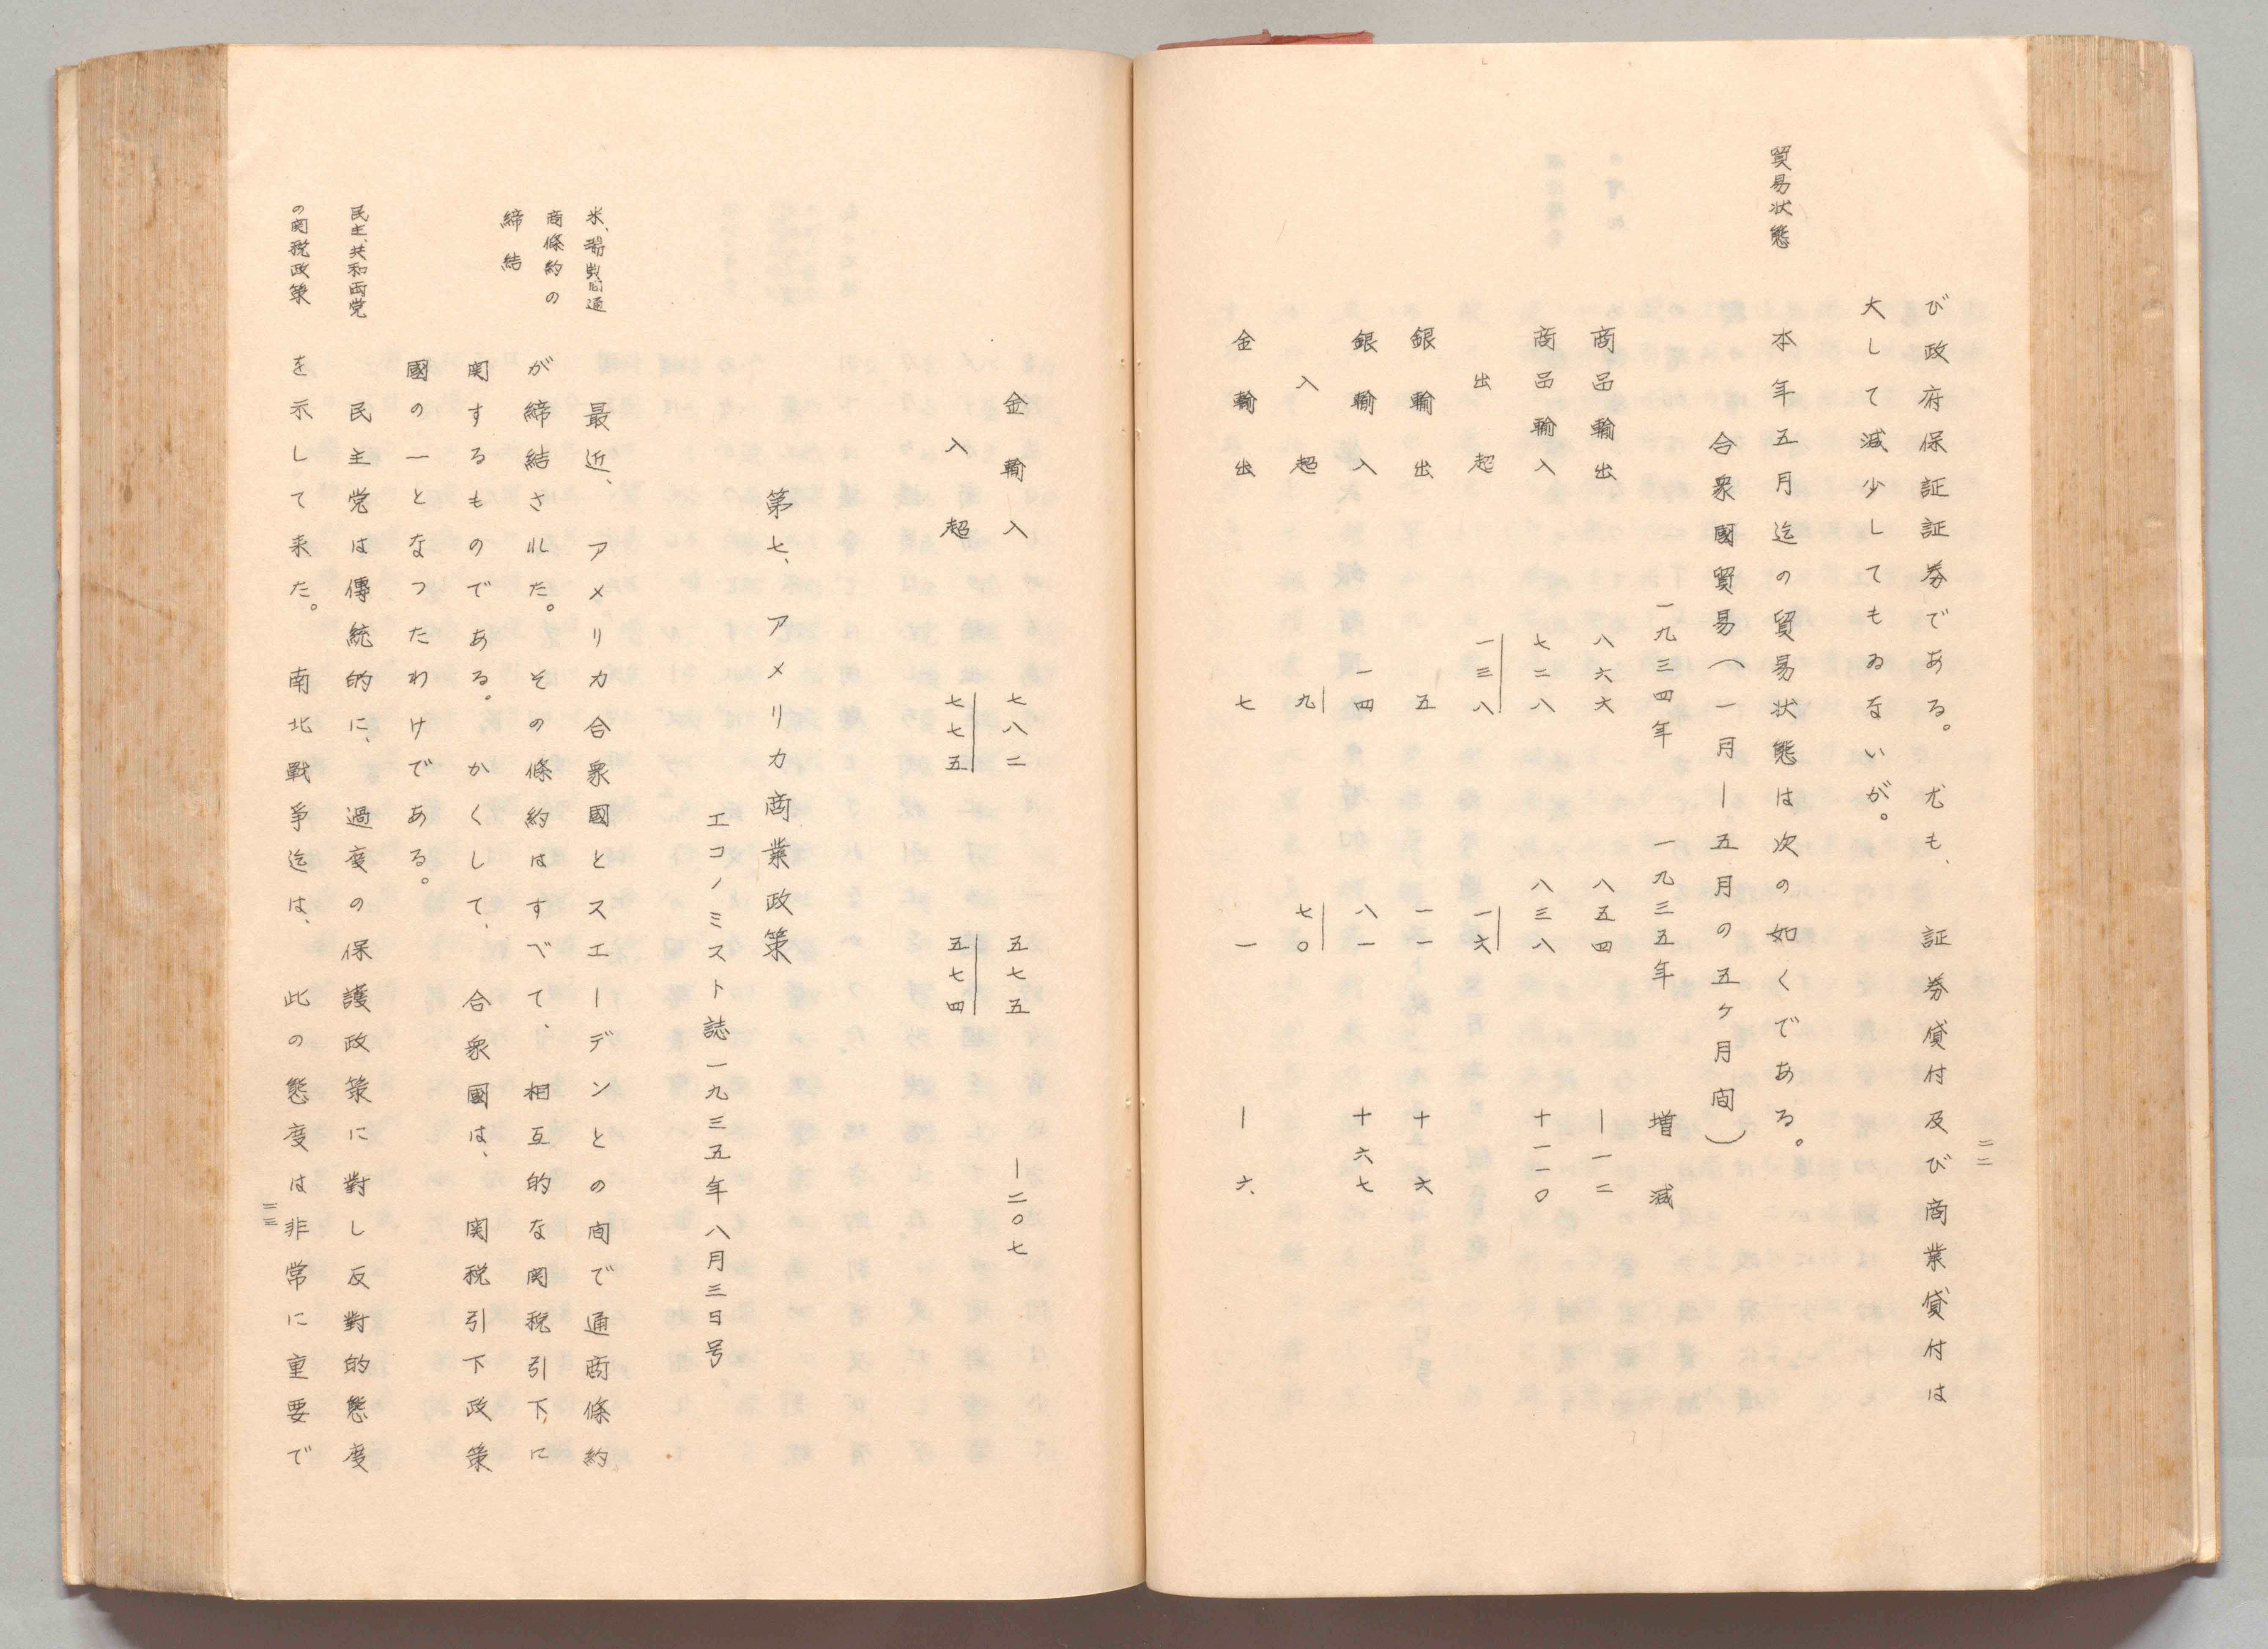 び政府保証証券である。尤も、　証券貸付及び商業貸付は
大して減少してもゐないが。
貿易状態
本年五月迄の貿易状態は次の如くである。
合衆國貿易(一月ー五月の五ヶ月間)
一九三四年　一九三五年　増減
商品輸出　八六六　八五四　ー一二
商品輸入　七二八　八三八　十一一〇
出超　一三八　一六
銀輸出　五　一一　十六
銀輸入　一四　八一　十六七
入超　九　七〇
金輸出　七　一　ー六
二二
金輸入　七八二　五七五　ー二〇七
入超　七七五　五七四
第七、アメリカ商業政策
エコノミスト誌一九三五年八月三日号
米、瑞典間通
商條約の
締結
最近、アメリカ合衆國とスエーデンとの間で通商條約
が締結された。その條約はすべて、相互的な関税引下に
関するものである。かくして、合衆國は、関税引下政策
國の一となつたわけである。
民主、共和両党
の関税政策
民主党は傳統的に、過度の保護政策に對し反對的態度
を示して来た。南北戰爭迄は、此の態度は非常に重要で
二三